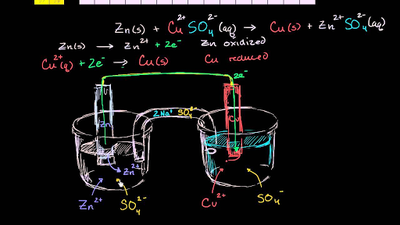 Zn(s) + Cu²⁺SO₄²⁻(aq) → Cu(s) + Zn²⁺SO₄²⁻(aq)
Zn(s) → Zn²⁺ + 2e⁻ Zn oxidized
Cu²⁺(aq) + 2e⁻ → Cu(s) Cu reduced
2e⁻
Zn
Cu
2Na⁺ SO₄²⁻
Zn²⁺
Zn²⁺ SO₄²⁻ Cu²⁺ SO₄⁻